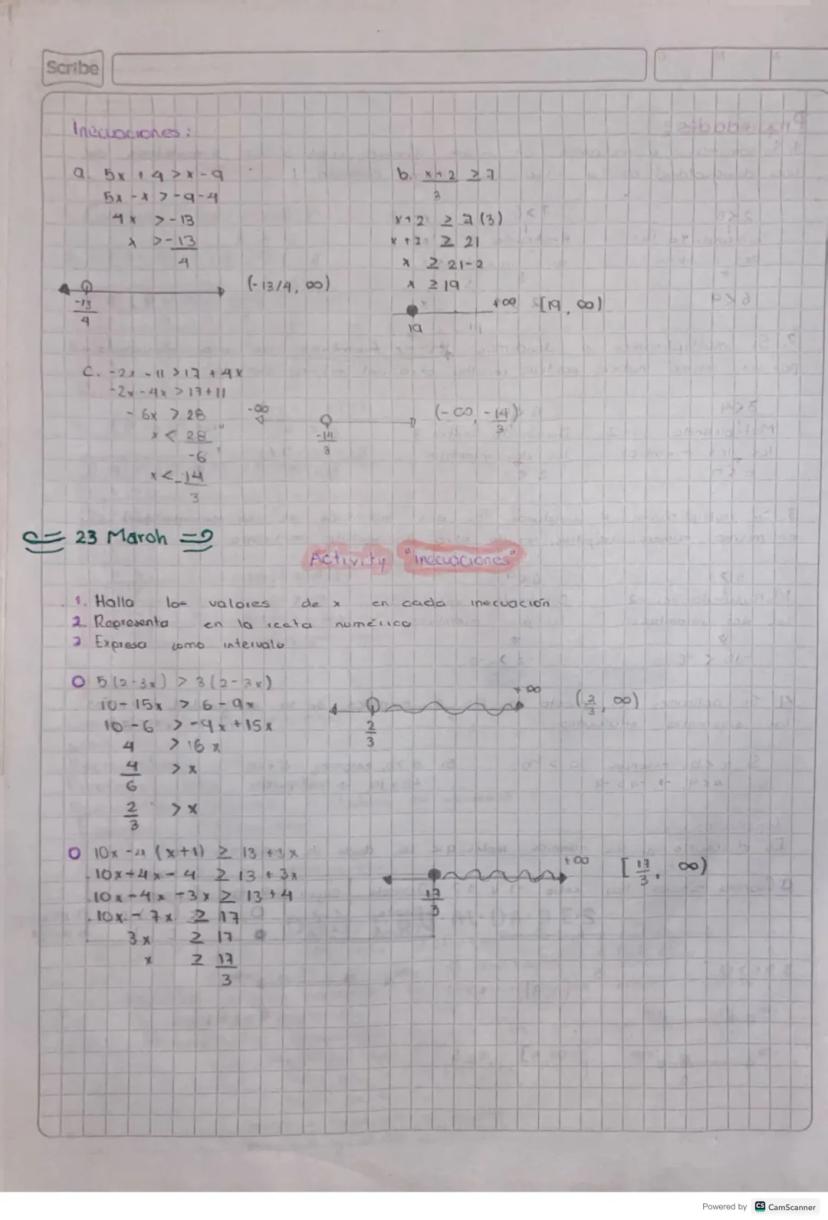 Scribe
Inecuaciones:
a. 5x + 4 > x - 9
5x - x > -9 - 4
4x > -13
x > -13
4
-13
4
(-13/4, ∞)
b. x + 2 ≥ 7
3
x + 2 ≥ 7 (3)
x + 2 ≥ 21
x ≥ 21 - 2
x ≥ 19
+∞ [19, ∞)
19
c. -2x - 11 > 17 + 4x
-2x - 4x > 17 + 11
- 6x > 28
x < 28
-6
x < -14
3
-∞
-14
3
(-∞, -14)
3
23 March
Activity "Inecuaciones"
1. Halla los valores de x en cada inecuación
2. Representa en la recta numérica
3 Expresa como intervalo
5(2-3x) > 3(2-3x)
10 - 15x > 6 - 9x
10 - 6 > -9x + 15x
4 > 6x
4
6
> x
2
3
> x
+∞
2
3
(2/3, ∞)
10x - 4 (x+1) ≥ 13 + 3x
10x - 4x - 4 ≥ 13 + 3x
10x - 4x - 3x ≥ 13 + 4
10x - 7x ≥ 17
3x ≥ 17
x ≥ 17
3
+∞
17
3
[17/3, ∞)
Powered by CS CamScanner